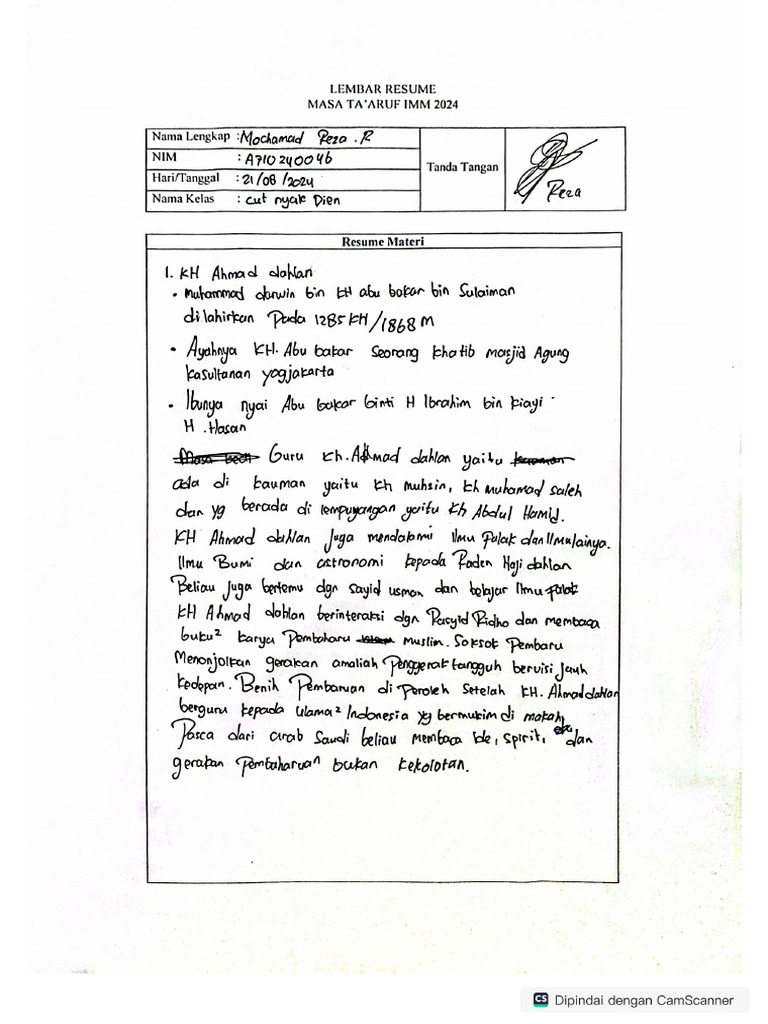 LEMBAR RESUME
MASA TA'ARUF IMM 2024
Nama Lengkap : Mochamad Reza . R
NIM : A710240046
Hari/Tanggal : 21/08/2024
Nama Kelas : Cut nyak Dien
Tanda Tangan
Reza
Resume Materi
1. KH Ahmad dahlan
• Muhammad darwin bin KH abu bakar bin Sulaiman
dilahirkan Pada 1285 KH/1868 M
• Ayahnya KH. Abu bakar Seorang Khatib masjid Agung
Kasultanan yogjakarta
• Ibunya nyai Abu bakar binti H Ibrahim bin kiayi
H. Hasan
Guru Kh. Ahmad dahlan yaitu
ada di kauman yaitu Kh muhsin, Kh muhamad saleh
dan yg berada di lempuyangan yaitu Kh Abdul Hamid.
KH Ahmad dahlan Juga mendalami Ilmu Palak dan Ilmu lainya.
Ilmu Bumi dan astronomi kepada Raden Haji dahlan
Beliau Juga bertemu dgn sayid usman dan belajar Ilmu Palak
KH Ahmad dahlan berinteraksi dgn Rasyid Ridho dan membaca
buku² karya Pembaharu muslim. Soksok Pembaru
Menonjolkan gerakan amaliah Penggerak tangguh bervisi Jauh
kedepan. Benih Pembaruan di Peroleh Setelah KH. Ahmad dahlan
berguru kepada ulama² Indonesia yg bermukim di makah,
Pasca dari arab Saudi beliau membaca Ide, spirit, dan
gerakan Pembaharuan bukan kekolotan.
CS Dipindai dengan CamScanner